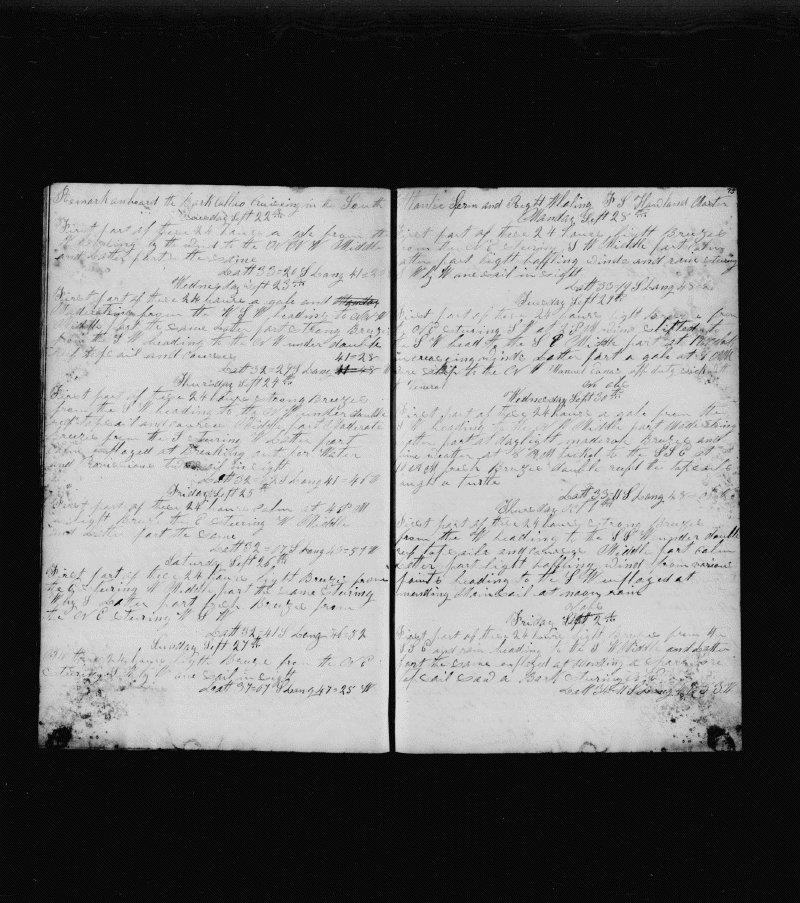 Remarks on board the Bark Callao Cruising in the South
Tuesday Sept 22th
First part of these 24 hours a gale from the
W heading by the wind to the N N W Middle
and Latter part the same
Latt 33=26 S Long 41=20
Wednesday Sept 23th
First part of these 24 hours a gale and
Moderating from the W S W heading to N W
Middle part the same Latter part strong Breeze
from the S W heading to the N W under double
reef topsail and courses 41=28
Latt 32=29 S Long W
Thursday Sept 24th
First part of these 24 hours strong Breeze
from the S W heading to the N W under double
reef topsail and courses Middle part Moderate
Breeze from the S stering W Latter part
employed at Breaking out for Water
and Provisions sail in sight
Latt 32=02 S Long 41=46 W
Friday Sept 25th
First part of these 24 hours calm at 4 P M
light Breeze from the E stering W Middle
and Latter part the same
Latt 32=07 S Long 43=57 W
Saturday Sept 26th
First part of these 24 hours light Breeze from
the E stering W Middle part the same stering
W by S Later part fresh Breeze from
the N E stering W S W
Latt 32=41 S Long 46=32
Sunday Sept 27th
these 24 hours light Breeze from the N E
stering S W by W one sail in sight
Long 47=25 W
73
Atlantic Sperm and Right Whaling F S Howland Master
Monday Sept 28th
First part of these 24 hours light Breeze
from stering S W Middle part Calm
Latter part light baffling winds and rain stering
S W by W one sail in sight
Latt 33=19 S Long 48
Tuesday Sept 29th
First part of these 24 hours light Breeze from
N E stering S W at 2 P M wind shifted to
the S W head to the S E Middle part
increasing winds Latter part a gale at
to the N W Manuel Lanes off duty sick
No obs
Wednesday Sept 30th
First part of these 24 hours a gale from the
S W heading to the Middle part Moderating
Latter part at daylight moderate Breeze and
fine weather at 8 A M tacked to the S S E
fresh Breeze double reefed the topsails
caught a turtle
Latt 33=11 S Long 48
Thursday Oct 1th
First part of these 24 hours strong Breeze
from the W heading to the S S W under double
reef topsails and courses Middle part calm
Latter part light baffling wind from various
points heading to the S W employed at
mending Mainsail at noon rain
No obs
Friday 2th
First part of these 24 hours light Breeze from the
S S E and rain heading to the S W Middle and Latter
part the same employed at mending a spare fore
topsail saw a Bark stering